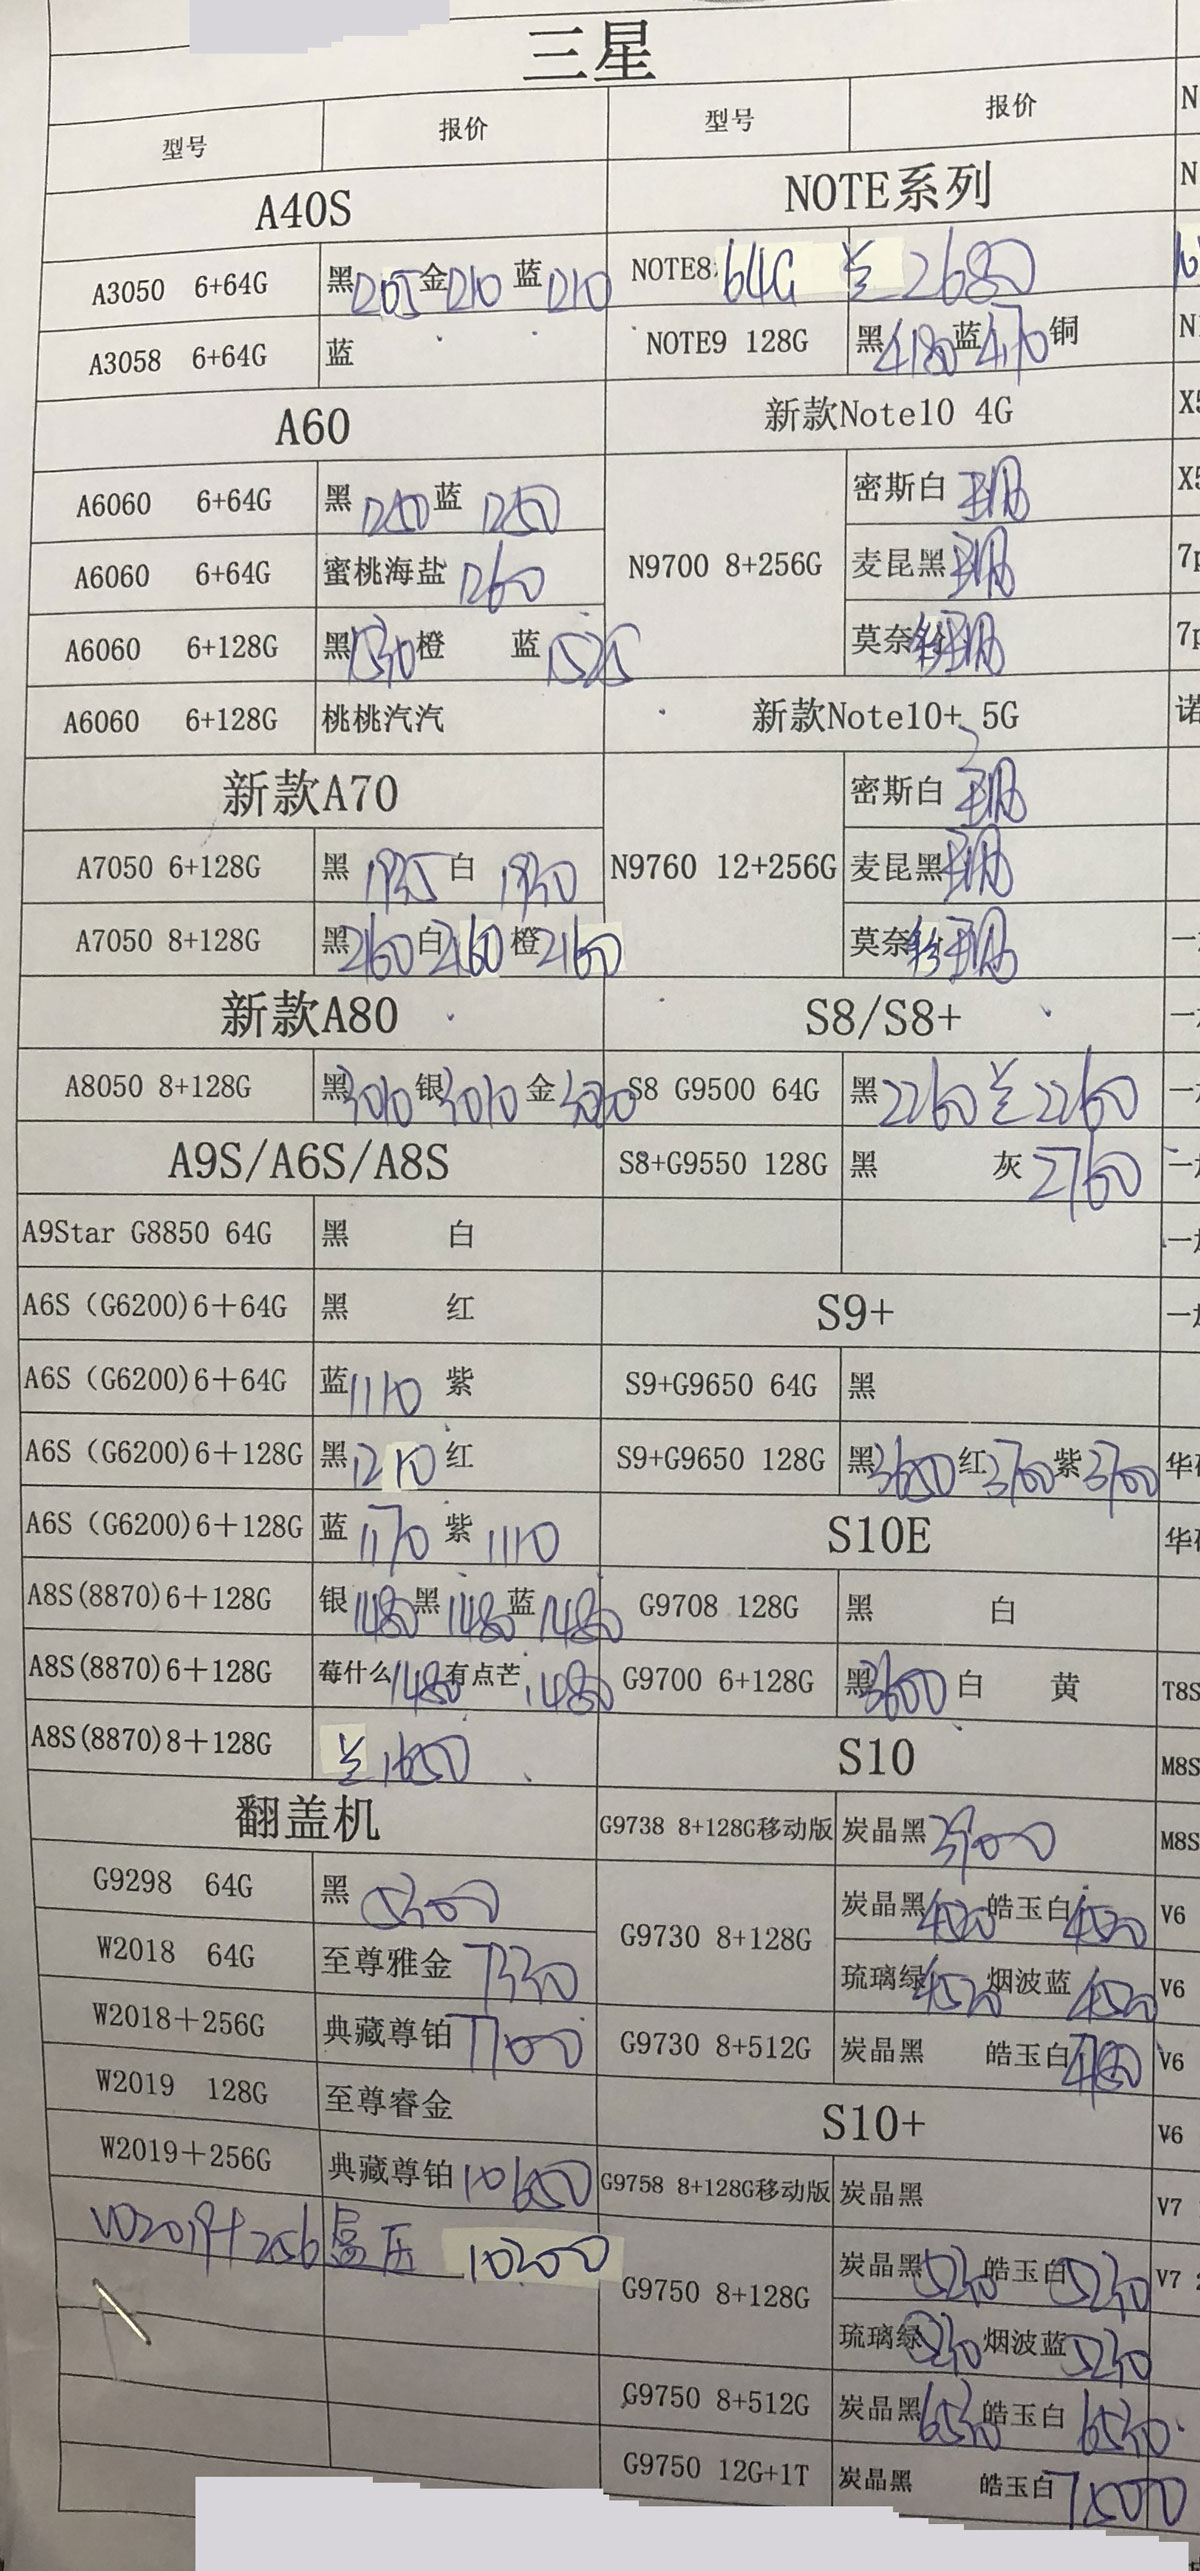 三星
型号 报价 型号 报价
A40S
A3050 6+64G 黑1205 金1210 蓝1210
A3058 6+64G 蓝
A60
A6060 6+64G 黑1250 蓝1250
A6060 6+64G 蜜桃海盐1260
A6060 6+128G 黑1530 橙 蓝1525
A6060 6+128G 桃桃汽汽
新款A70
A7050 6+128G 黑 白
A7050 8+128G 黑2160 白2160 橙2160
新款A80
A8050 8+128G 黑3010 银3010 金
A9S/A6S/A8S
A9Star G8850 64G 黑 白
A6S（G6200)6＋64G 黑 红
A6S（G6200)6＋64G 蓝1110 紫
A6S（G6200)6＋128G 黑1210 红
A6S（G6200)6＋128G 蓝1170 紫1110
A8S(8870)6＋128G 银1480 黑1480 蓝1480
A8S(8870)6＋128G 莓什么1480 有点芒1480
A8S(8870)8＋128G 兰1650
翻盖机
G9298 64G 黑5300
W2018 64G 至尊雅金7330
W2018＋256G 典藏尊铂7700
W2019 128G 至尊睿金
W2019＋256G 典藏尊铂10650
W2019+256 10200
NOTE系列
NOTE8 64G 兰2680
NOTE9 128G 黑4180 蓝4170 铜
新款Note10 4G
N9700 8+256G 密斯白
麦昆黑
莫奈粉
新款Note10+ 5G
N9760 12+256G 密斯白
麦昆黑
莫奈粉
S8/S8+
S8 G9500 64G 黑2260 兰2260
S8+G9550 128G 黑 灰2760
S9+
S9+G9650 64G 黑
S9+G9650 128G 黑3650 红3700 紫3700
S10E
G9708 128G 黑 白
G9700 6+128G 黑3600 白 黄
S10
G9738 8+128G移动版 炭晶黑3900
G9730 8+128G 炭晶黑4520 皓玉白4520
琉璃绿4520 烟波蓝4520
G9730 8+512G 炭晶黑 皓玉白
S10+
G9758 8+128G移动版 炭晶黑
G9750 8+128G 炭晶黑5230 皓玉白5230
琉璃绿5230 烟波蓝5230
G9750 8+512G 炭晶黑6530 皓玉白6530
G9750 12G+1T 炭晶黑 皓玉白
T8S
M8S
M8S
V6
V6
V6
V6
V7
V7